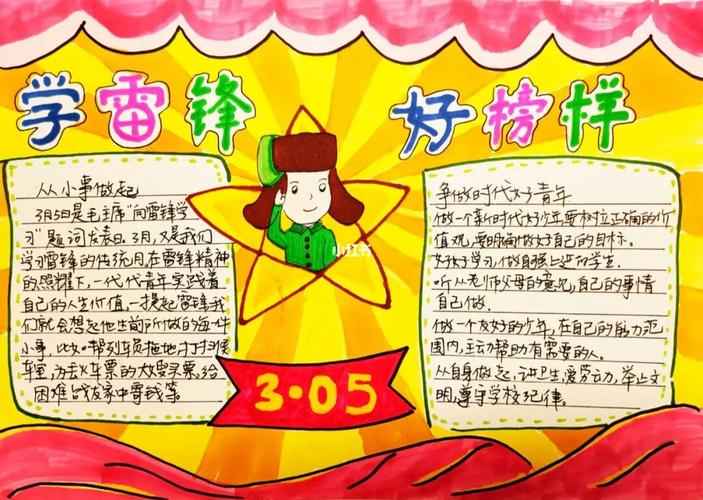 学雷锋 好榜样
从小事做起
3月5日是毛主席"向雷锋学
习"题词发表日。3月，又是我们
学习雷锋的传统月在雷锋精神
的照耀下，一代代青年实践着
自己的人生价值，一提起雷锋我
们就会想起他生前所做的每一件
小事，比如帮列车员拖地打扫候
车室，为丢火车票的大嫂买票，给
困难战友家中寄钱等。
争做时代好青年
做一个新时代好少年要树立正确的价
值观，要明确做好自己的目标。
好好学习，做自强上进的学生.
听从老师父母的意见，自己的事情
自己做.
做一个友好的少年，在自己的能力范
围内，主动帮助有需要的人。
从自身做起，讲卫生，爱劳动，举止文
明，遵守学校纪律。
小红书
3·05